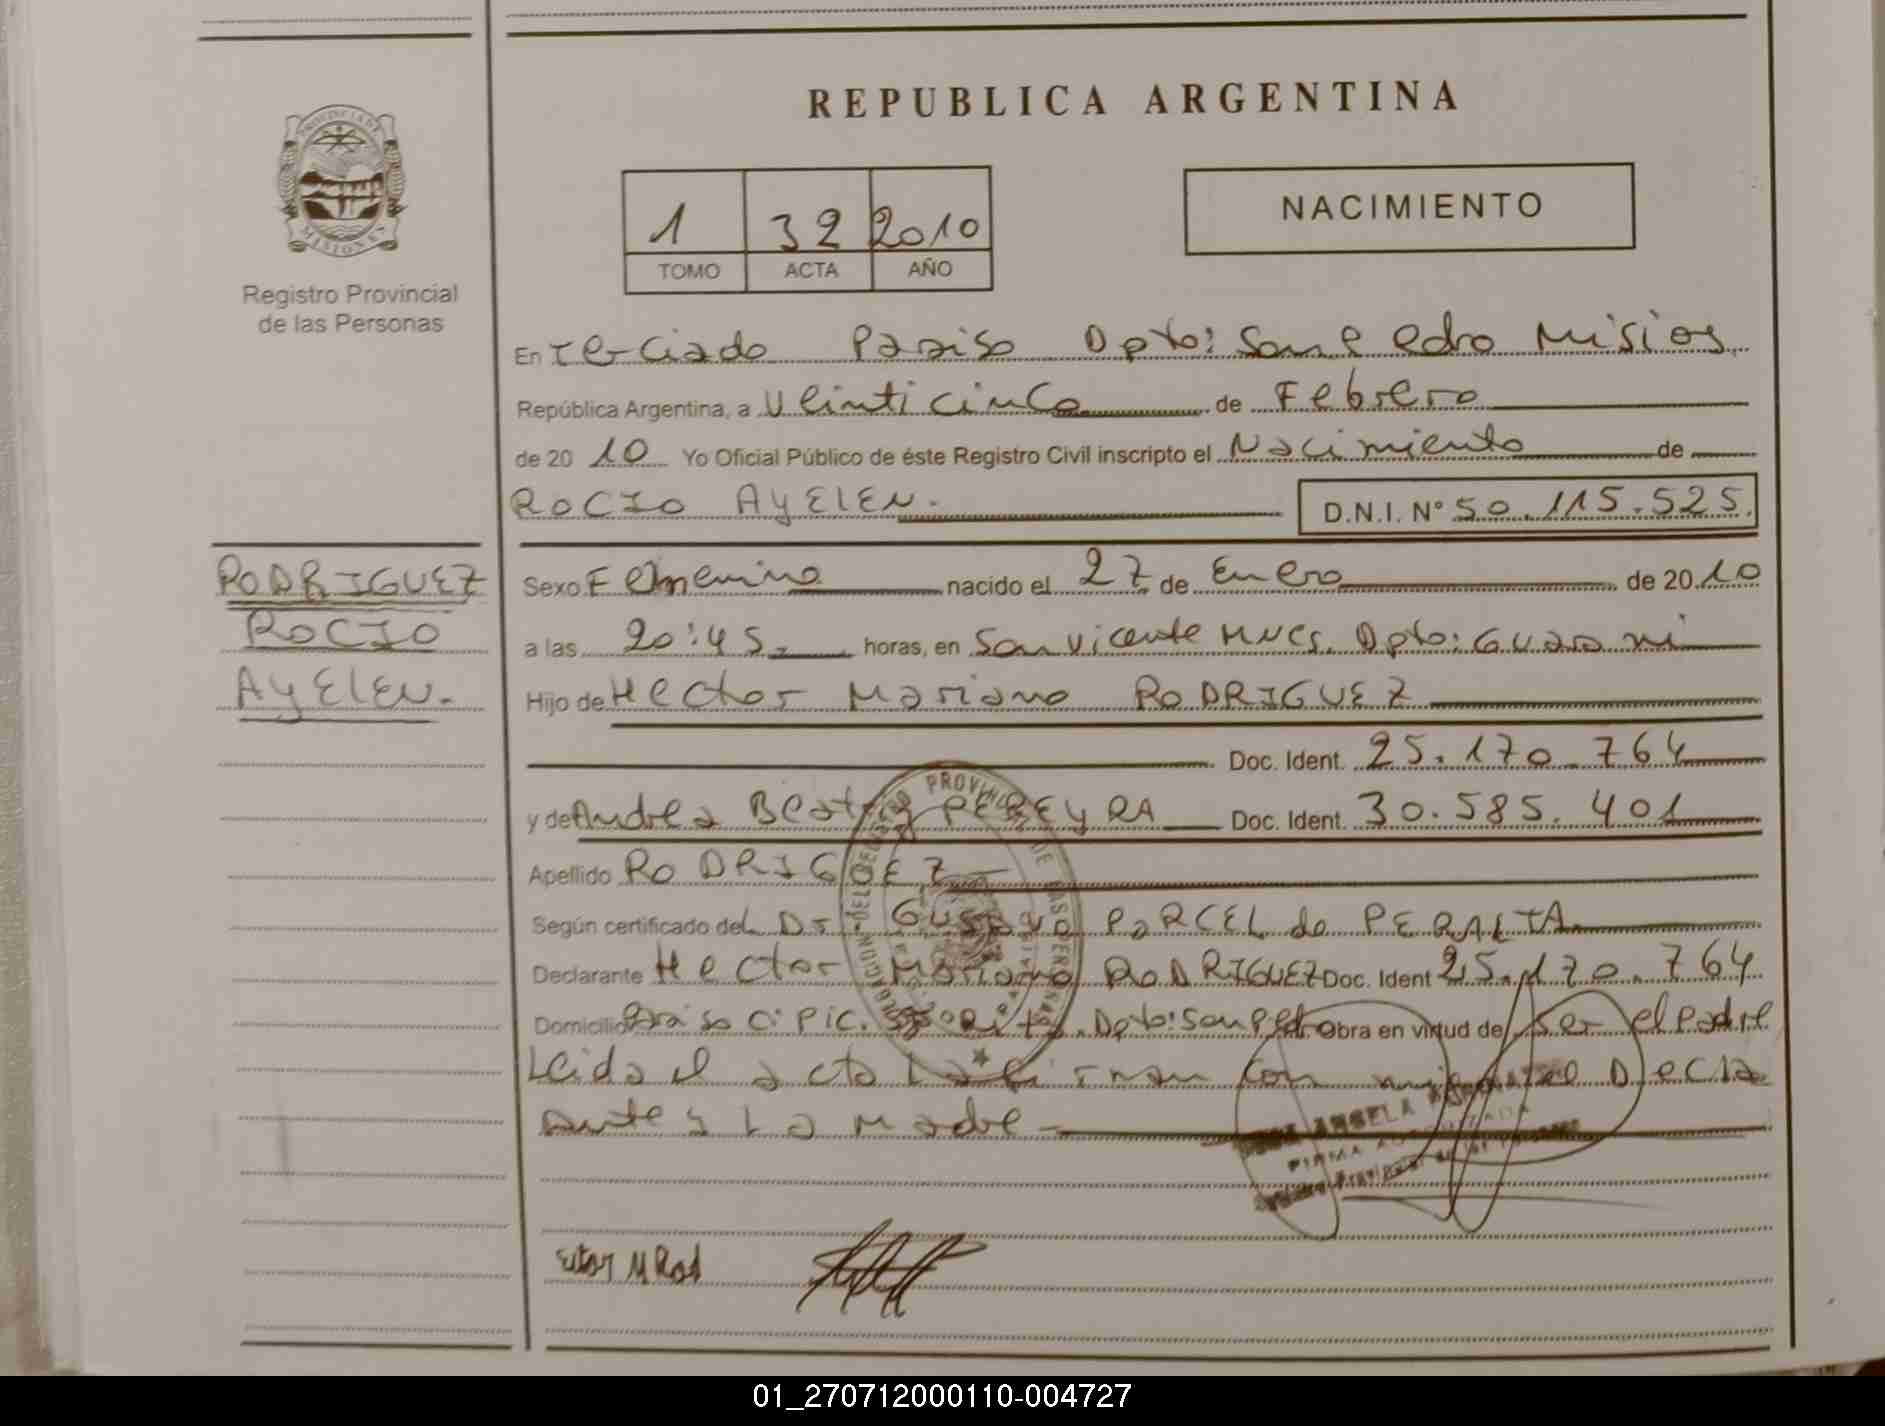 REPUBLICA ARGENTINA
PROVINCIA DE
MISIONES
Registro Provincial
de las Personas
1 32 2010
TOMO ACTA AÑO
NACIMIENTO
En Terciado Paraiso Dpto: San Pedro Misios
República Argentina, a Veinticinco de Febrero
de 2010 Yo Oficial Público de éste Registro Civil inscripto el Nacimiento de
ROCIO AYELEN.
D.N.I. N° 50.115.525.
RODRIGUEZ
ROCIO
AYELEN.
Sexo Femenino nacido el 27 de Enero de 2010
a las 20:45 horas, en San Vicente MNES. Dpto: Guarani
Hijo de Hector Mariano RODRIGUEZ
Doc. Ident. 25.170.764
y de Andrea Beatriz PEREYRA Doc. Ident. 30.585.401
Apellido RODRIGUEZ
Según certificado del Dr. Gustavo PORCEL de PERALTA
Declarante Hector Mariano RODRIGUEZ Doc. Ident 25.170.764
Domicilio Paraiso Dpto: San Pedro Obra en virtud de Ser el Padre
Leida el acta La firman con migo el Decla
ante y La Madre
FIRMA AUTORIZADA
Eitor M Rod
01_270712000110-004727